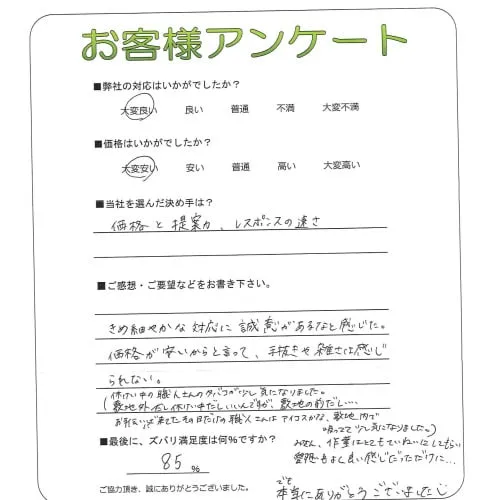 お客様アンケート
■弊社の対応はいかがでしたか？
大変良い 良い 普通 不満 大変不満
■価格はいかがでしたか？
大変安い 安い 普通 高い 大変高い
■当社を選んだ決め手は？
価格と提案力、レスポンスの速さ
■ご感想・ご要望などをお書き下さい。
きめ細やかな対応に誠意があるなと感じた。
価格が安いからと言って、手抜きや雑さは感じ
られない。
(休けい中の職人さんのタバコが少し気になりました。
敷地外だし休けい中だしいいんですが、敷地の前だし…
お手伝いに来てたその日だけの職人さんはアイコスかな、敷地内で
吸ってて少し気になりました。)
■最後に、ズバリ満足度は何%ですか？
みなさん、作業はとてもていねいにしてもらい
85 %
愛想もよし良い感じだっただけに…
でも
ご協力頂き、誠にありがとうございました。
本当にありがとうございました